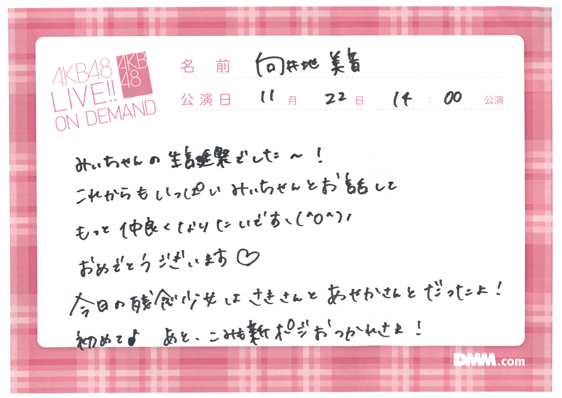 AKB48
LIVE!!
ON DEMAND
AKB
48
名前 向井地 美音
公演日 11月 22日 14:00 公演
みぃちゃんの生誕祭でした〜!
これからもいっぱいみぃちゃんとお話して
もっと仲良くなりたいです、(^o^)ノ
おめでとうございます♡
今日の残念少女はさきさんとあやかさんとだったよ!
初めて♪ あと、こみも新ポジおつかれさま!
DMM.com